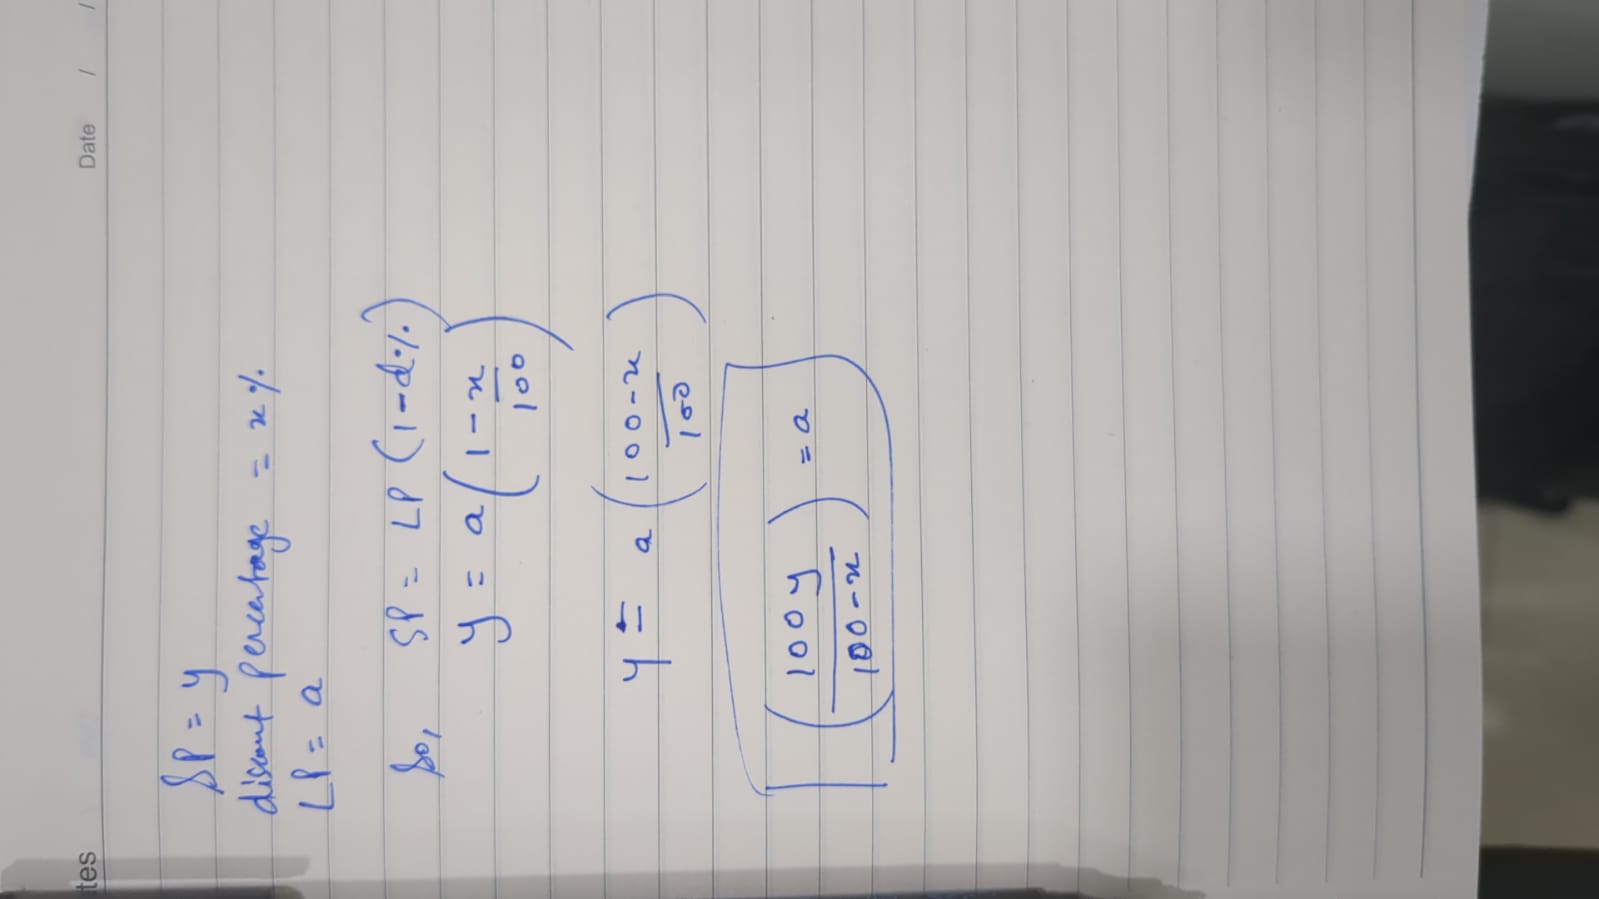 tes Date / /
SP = y
discount percentage = x%
LP = a
So, SP = LP (1-d%)
y = a(1-x/100)
y = a(100-x/100)
(100y/100-x) = a